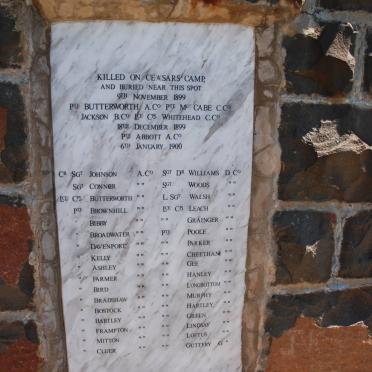 KILLED ON CEASARS CAMP,
AND BURIED NEAR THIS SPOT
9TH NOVEMBER 1899
PTE BUTTERWORTH A.CO PTE MC CABE C.CO
JACKSON B.CO LCE CPL WHITEHEAD C.CO
18TH DECEMBER 1899
PTE ABBOTT A.CO
6TH JANUARY 1900
CR SGT JOHNSON A.CO SGT DR WILLIAMS D CO
SGT CONNOR " " SGT WOODS " "
LCE CPL BUTTERWORTH " " L. SGT WALSH " "
PTE BROWNHILL " " LCE CPL LEACH " "
BIBBY " " GRAINGER " "
BROADWATER " " PTE POOLE " "
DAVENPORT " " PARKER " "
KELLY " " CHEETHAM " "
ASHLEY " " GEE " "
FARMER " " HANLEY " "
BIRD " " LONGBOTTOM " "
BRADSHAW " " MURPHY " "
BOSTOCK " " HARTLEY " "
BARTLEY " " GREEN " "
FRAMPTON " " LINDSAY " "
MITTON " " LOFTUS " "
CLUER " " GUTTERY G "